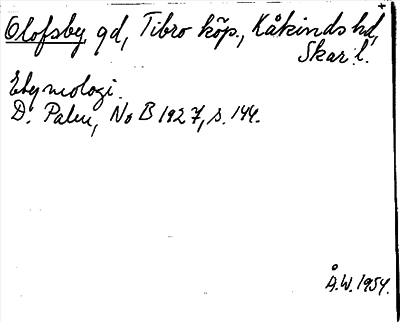 Olofsby, gd, Tibro köp., Kåkinds hd,
Skar. l.
Etymologi.
D. Palm, NoB 1927, s. 144.
Å.W. 1954.